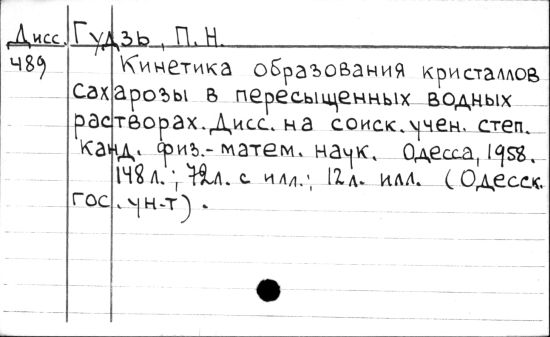 Дисс. Гудзь, П.Н.
489 Кинетика образования кристаллов
сахарозы в пересыщенных водных
растворах. Дисс. на соиск. учен. степ.
канд. физ.-матем. наук. Одесса, 1958.
148 л.; 72 л. с илл.; 12 л. илл. (Одесск.
гос. ун-т).